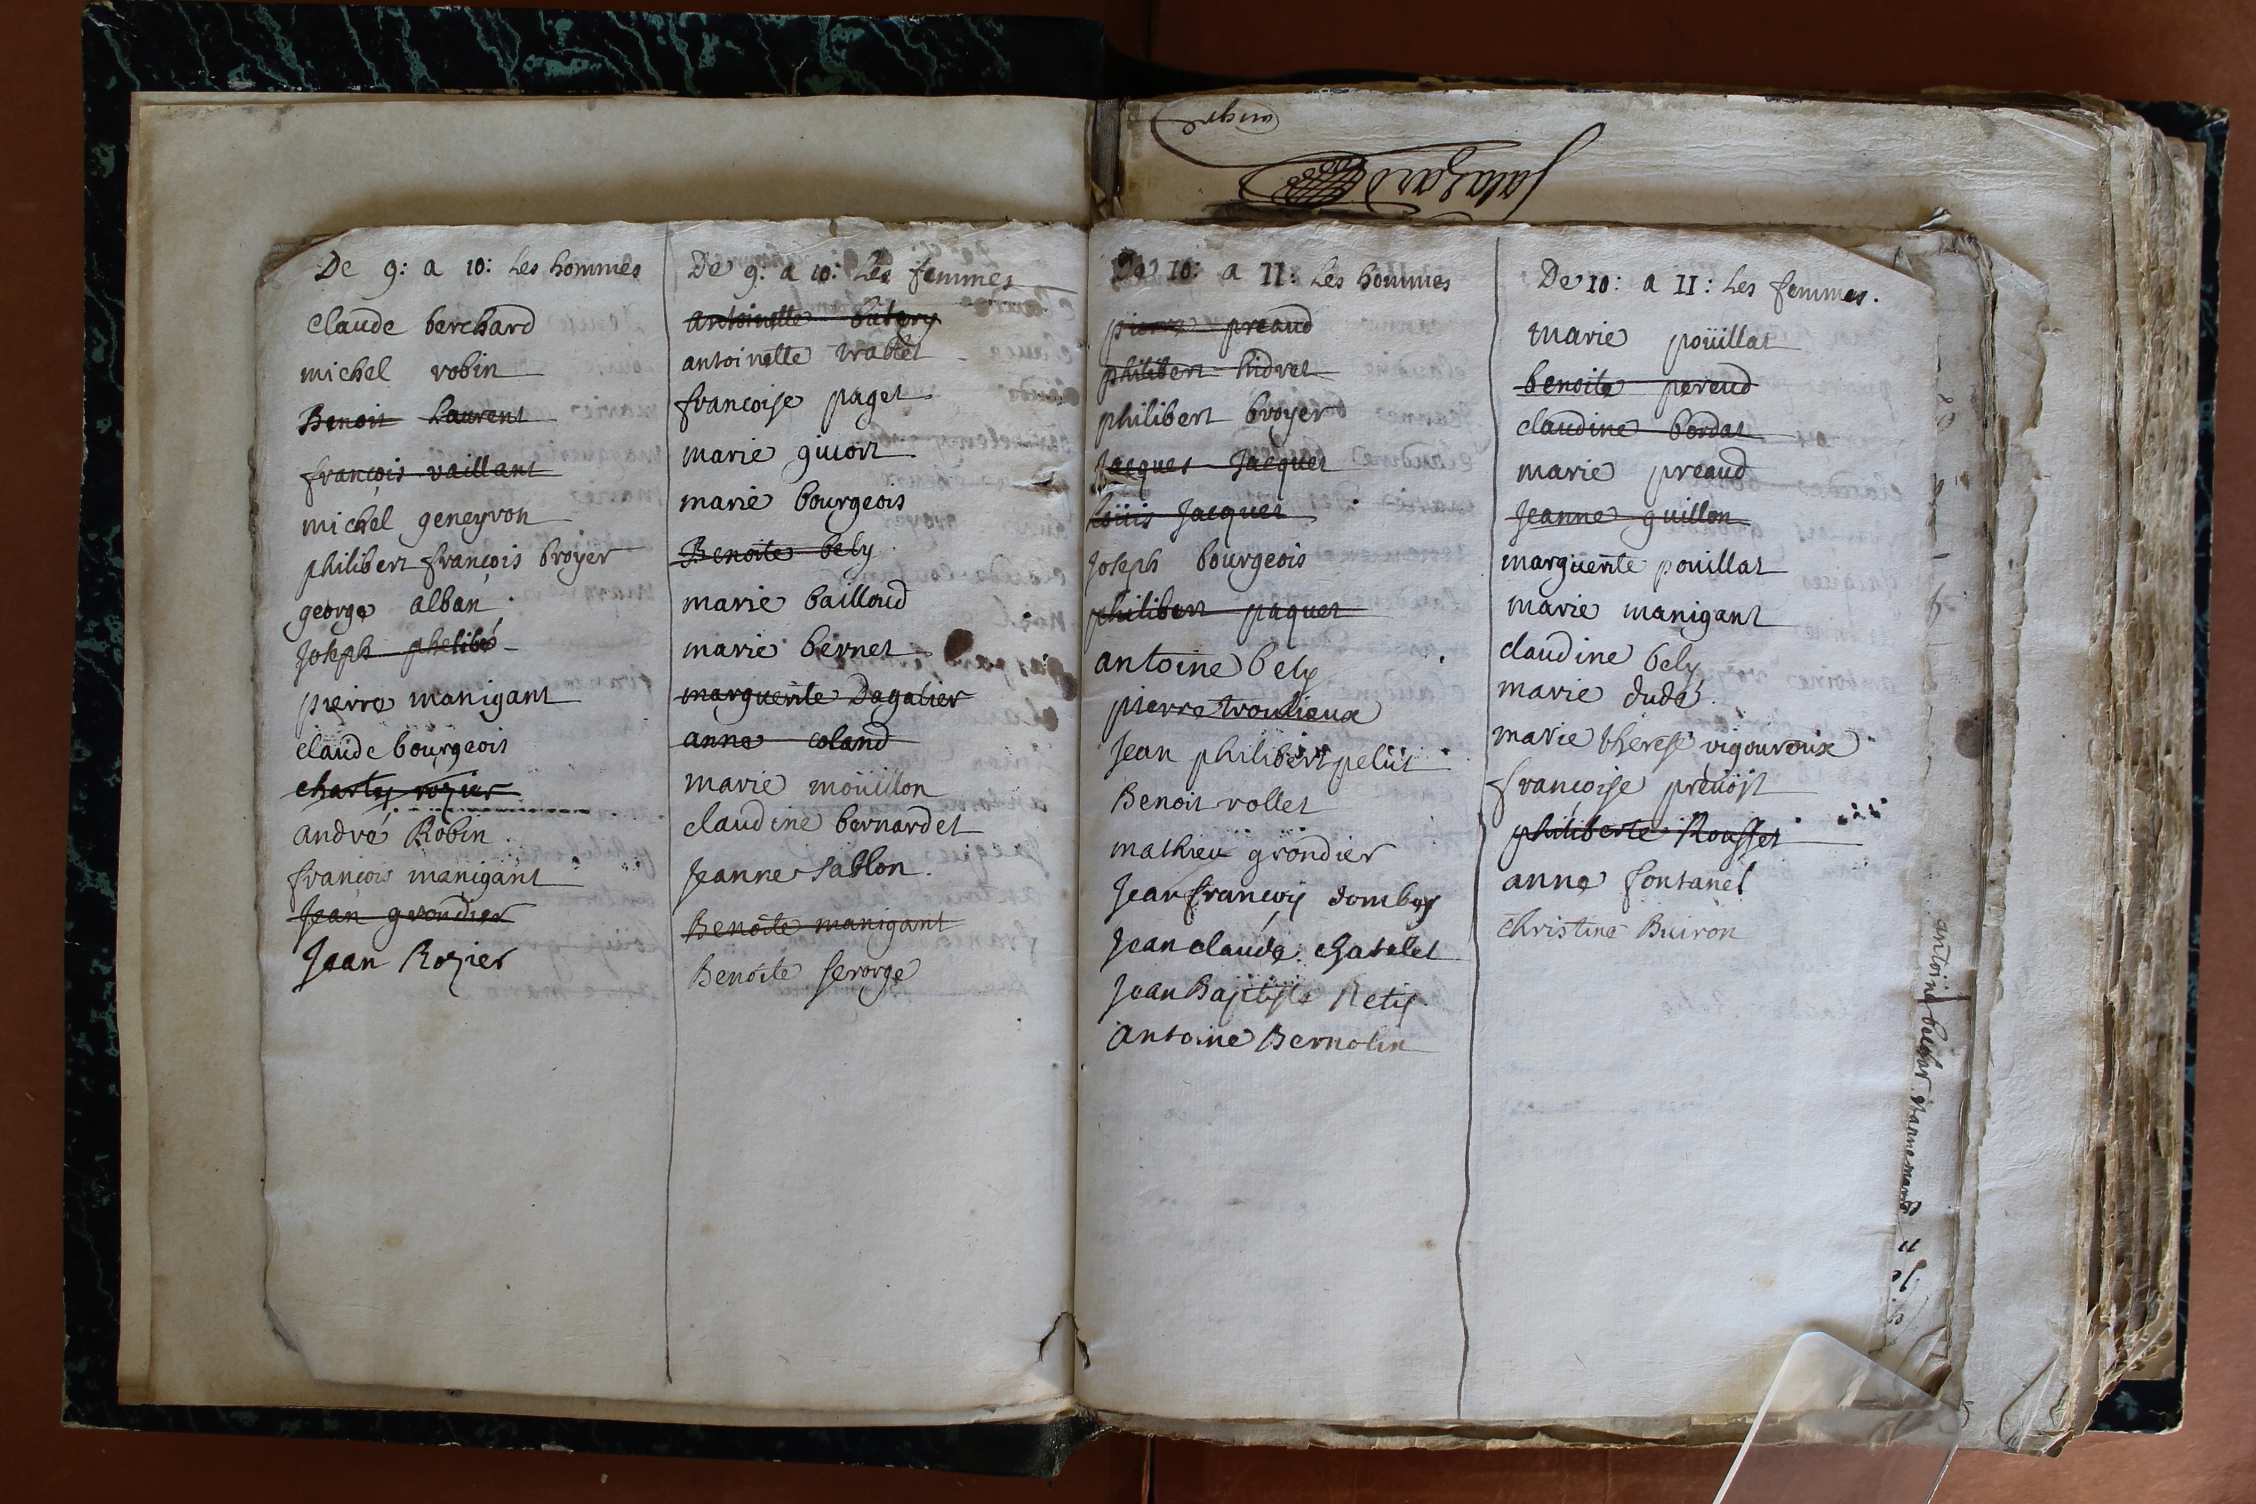 De 9: a 10: Les hommes
claude berchard
michel robin
Benoit Laurent
françois vaillant
michel geneyron
philibert françois broyer
george alban
Joseph phelibé
pierre manigant
claude bourgeois
charles rozier
andré Robin
françois manigant
Jean grondier
Jean Rozier
De 9: a 10: Les femmes
antoinette
antoinette trablet
francoise paget
marie guiort
marie bourgeois
Benoite bely
marie bailloud
marie bernet
marguerite Dagalier
anne coland
marie moüillon
claudine bernardet
Jeanne Sablon
Benoite manigant
Benoite ferorge
De 10: a 11: Les hommes
pierre preaud
philibert hidret
philibert broyer
Jacques Jacquet
Loüis Jacquet
Joseph bourgeois
philibert paquet
antoine bely
pierre troulieux
Jean philibert peluit
Benoit vollet
mathieu grondier
Jean françoys dombey
Jean claude chatelet
Jean Baptiste Retis
antoine Bernolin
De 10: a 11: Les femmes.
marie poüillat
benoite pereud
claudine bordat
marie preaud
Jeanne guillon
marguerite pouillat
marie manigant
claudine bely
marie dudé
marie therese vigouroux
françoise prevost
philiberte Rousset
anne fontanel
christine Buiron
antoine